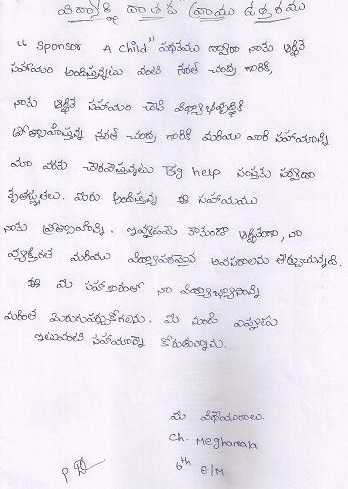 విద్యార్థి దాతకు వ్రాయు ఉత్తరము
" Sponsor A child " పథకము ద్వారా నాకు ఆర్థిక
సహాయం అందిస్తున్నటు వంటి శరత్ చంద్ర గారికి,
నాకు ఆర్థిక సహాయం చేసి విద్యాభివృద్ధికి
తోడ్పడుతున్న శరత్ చంద్ర గారికి మరియు వారి సహాయాన్ని
మా వరకు చేరవేస్తున్నటు To help సంస్థకు సర్వదా
కృతజ్ఞతలు. మీరు అందిస్తున్న ఈ సహాయము
నాకు ప్రోత్సాహాన్ని, ఇవ్వడమే కాకుండా ఆర్థికంగా, నా
వ్యక్తిగత మరియు విద్యాపరమైన అవసరాలను తీర్చుచున్నది.
ఈ మీ సహకారంతో నా విద్యాభ్యాసాన్ని
మరింత మెరుగుపర్చుకోగలను. మీ నుండి ఎప్పుడు
ఇటువంటి సహాయాన్నే కోరుతున్నాను.
మీ విధేయురాలు.
Ch. Meghamala
6th E/M